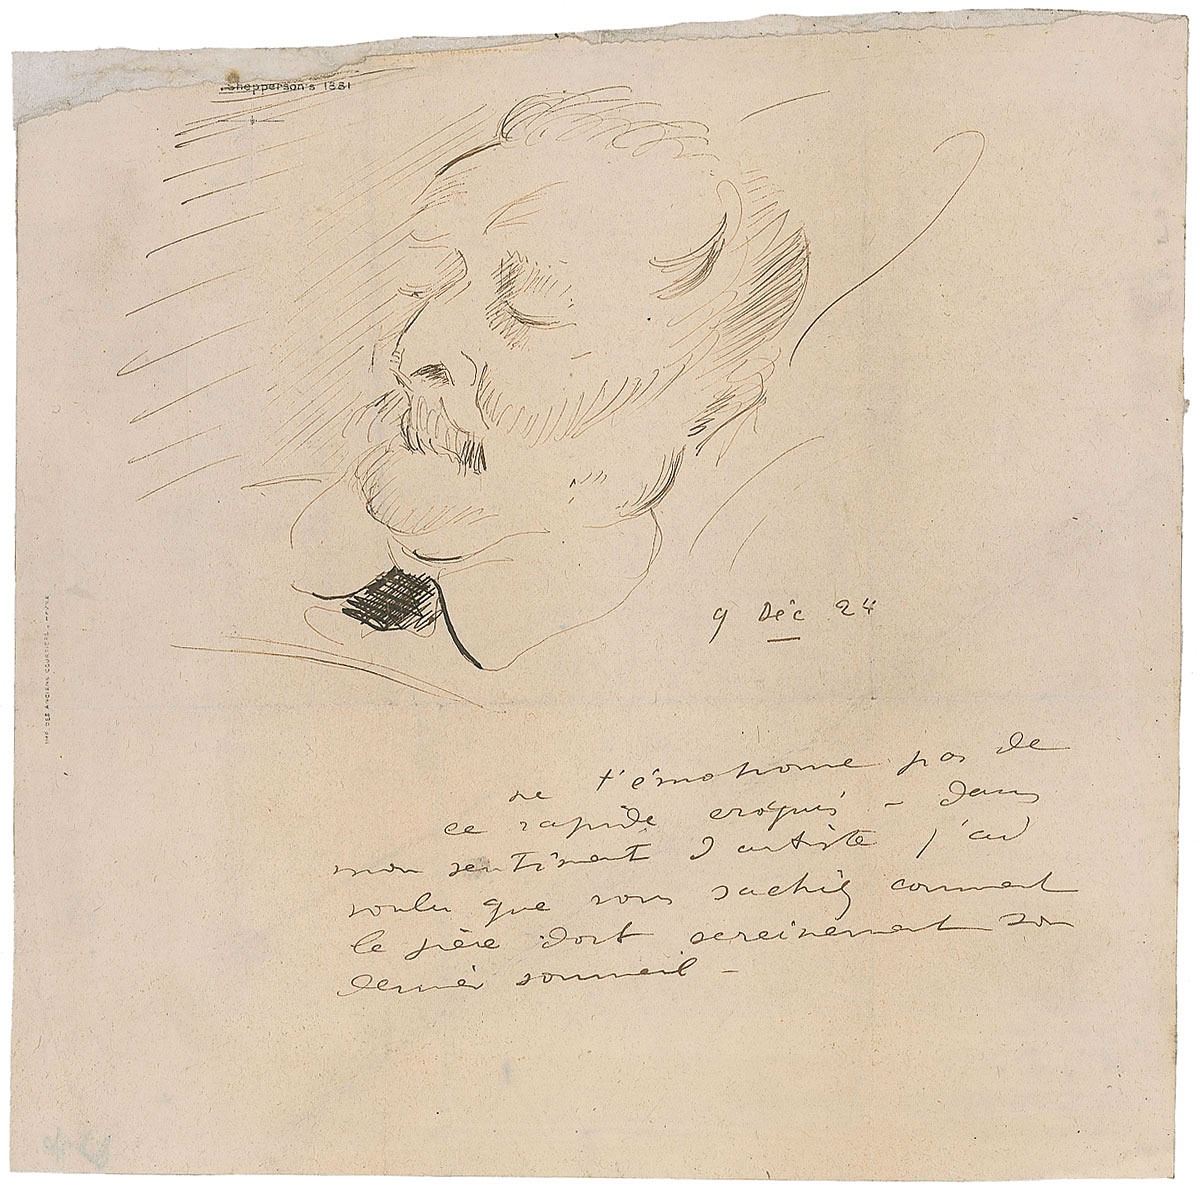 Shepperson's 1881
9 Déc 24
IMP. DES ANCIENS COURTIERS - HAVRE
ne t'émotionne pas de
ce rapide croquis - dans
mon sentiment d'artiste j'ai
voulu que vous sachiez comment
le père dort sereinement son
dernier sommeil -